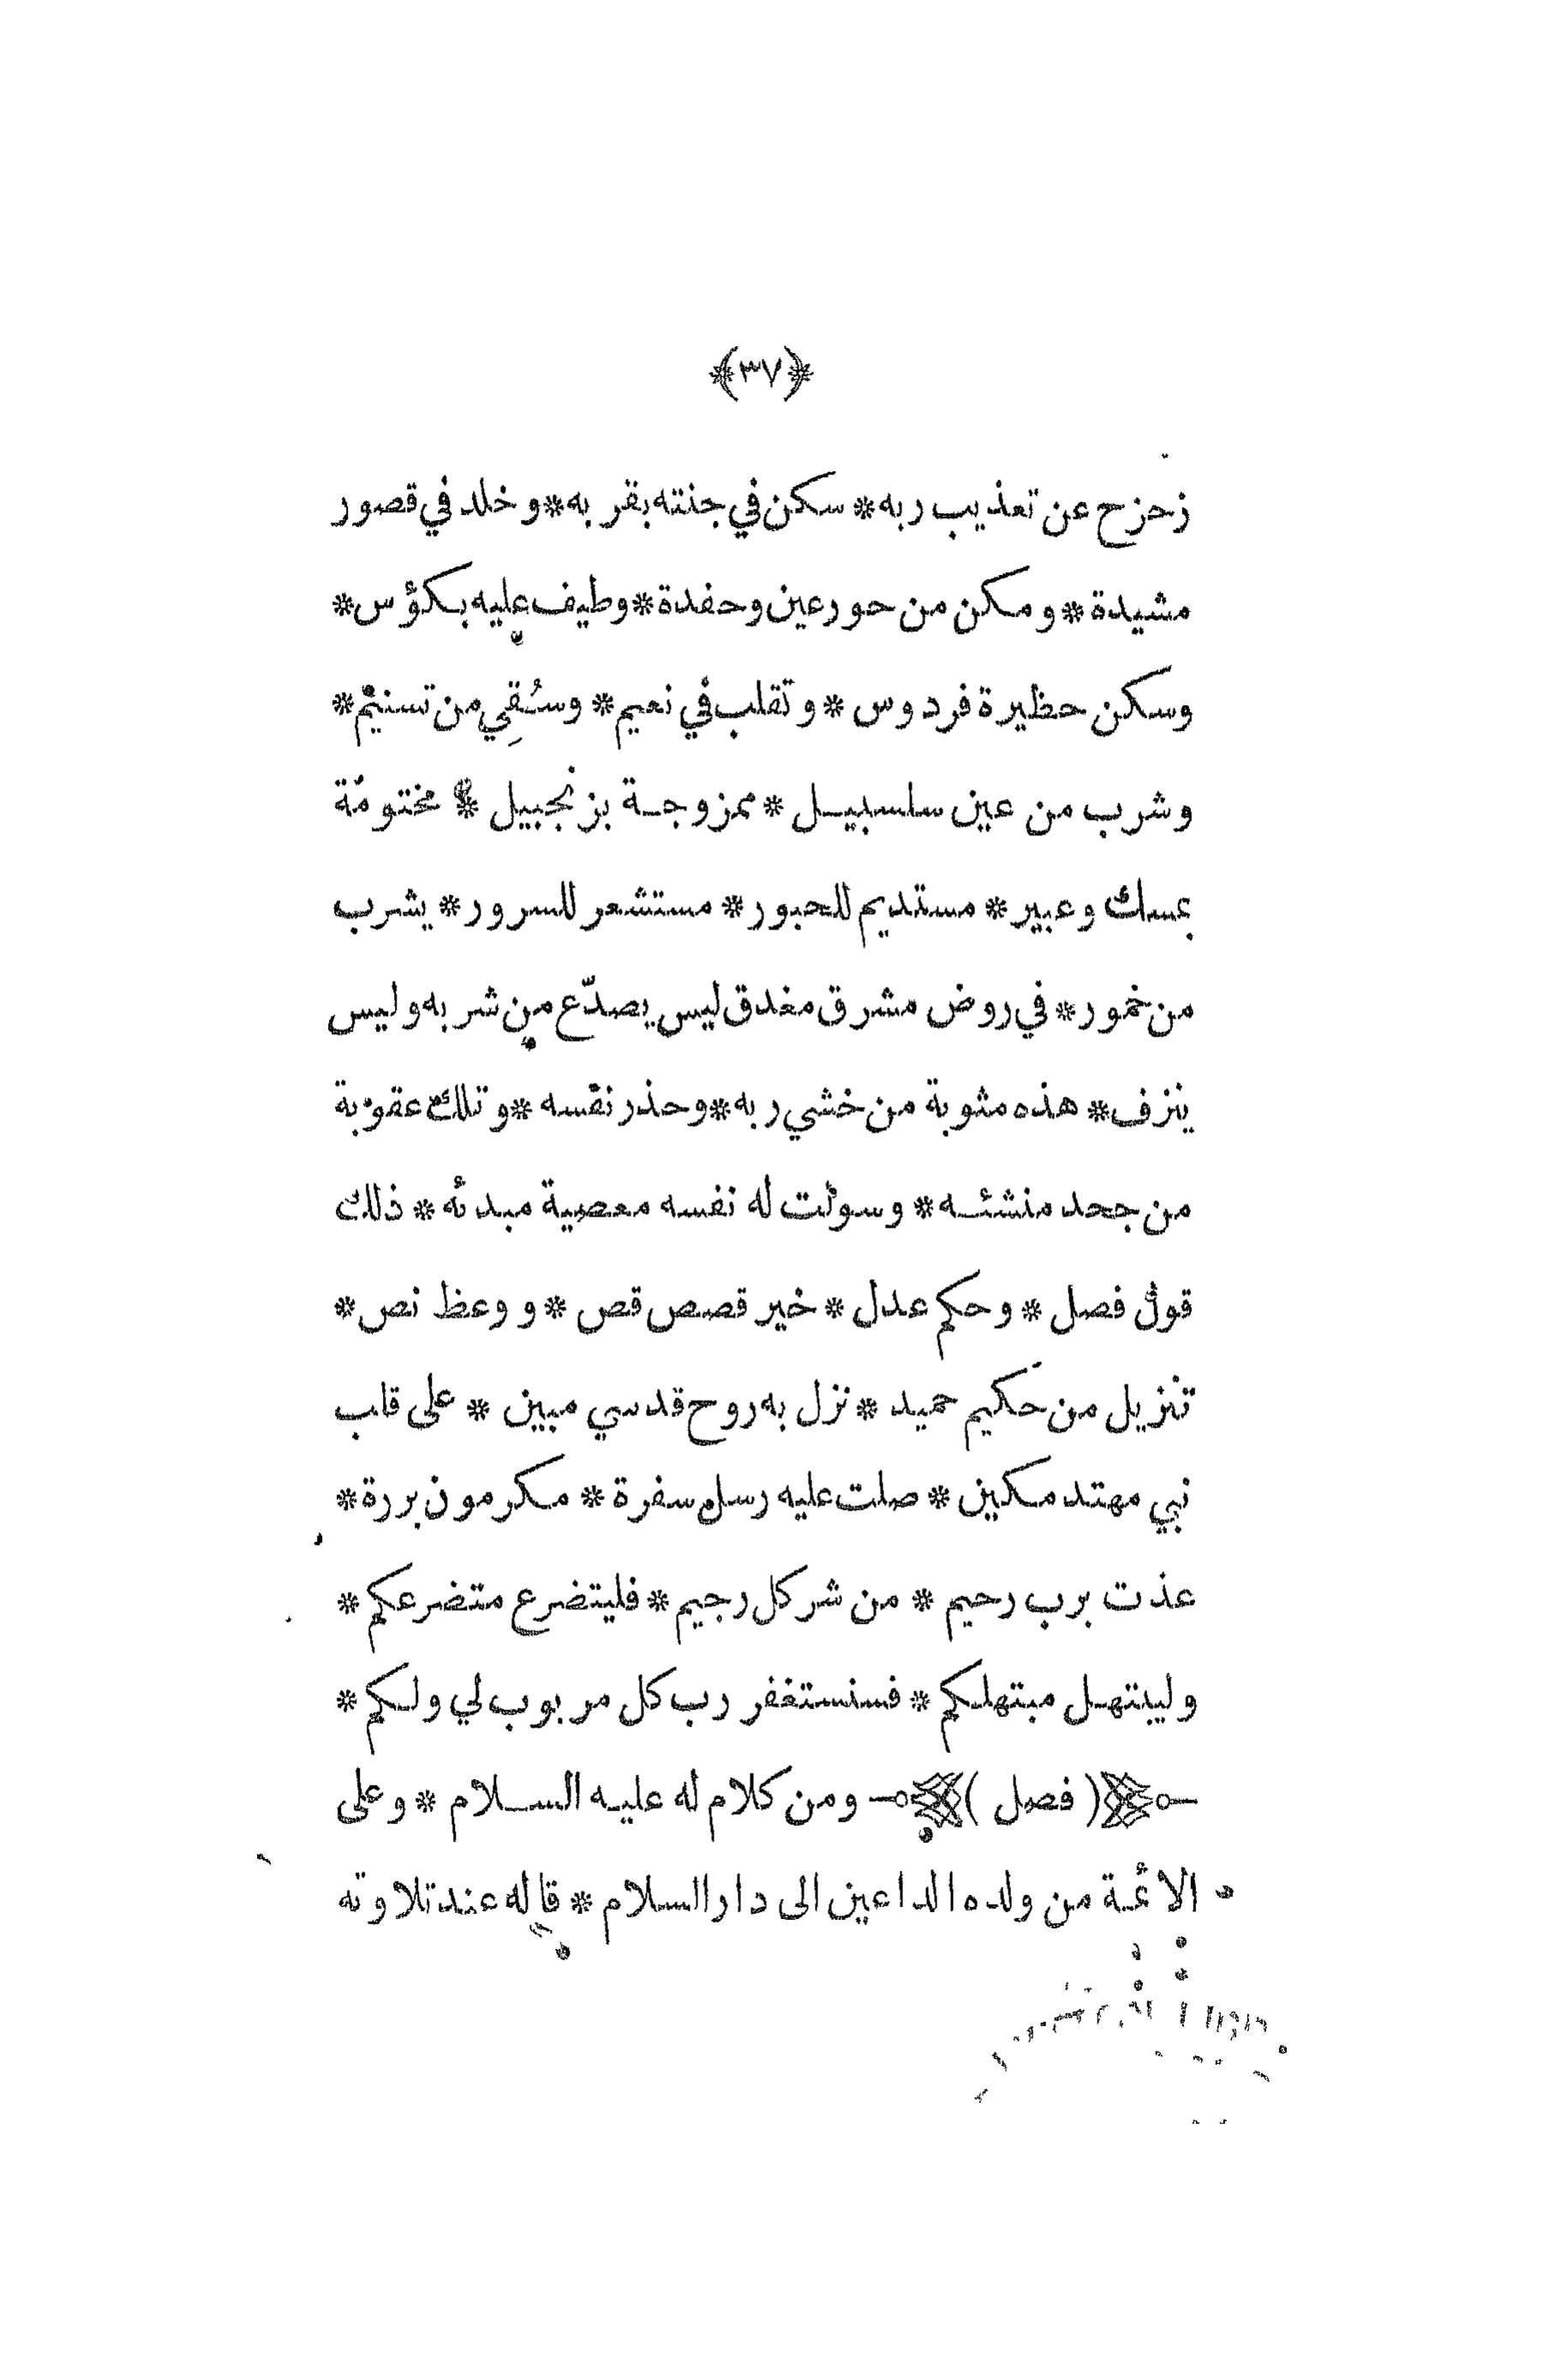 ﴿٣٧﴾
زحزح عن تعذيب ربه * سكن في جنته بقربه * وخلد في قصور
مشيدة * ومكن من حور عين وحفدة * وطيف عليه بكؤس *
وسكن حظيرة فردوس * وتقلب في نعيم * وسُقِي من تسنيم *
وشرب من عين سلسبيل * ممزوجة بزنجبيل * مختومة
بمسك وعبير * مستديم للحبور * مستشعر للسرور * يشرب
من خمور * في روض مشرق مغدق ليس يصدّع من شربه وليس
ينزف * هذه مثوبة من خشي ربه * وحذر نفسه * وتلك عقوبة
من جحد منشئه * وسولت له نفسه معصية مبدئه * ذلك
قول فصل * وحكم عدل * خير قصص قص * ووعظ نص *
تنزيل من حكيم حميد * نزل به روح قدسي مبين * على قلب
نبي مهتد مكين * صلت عليه رسل سفرة * مكرمون بررة *
عذت برب رحيم * من شر كل رجيم * فليتضرع متضرعكم *
وليبتهل مبتهلكم * فسنستغفر رب كل مربوب لي ولكم *
( فصل ) ومن كلام له عليه السلام * وعلى
الائمة من ولده الداعين الى دار السلام * قاله عند تلاوته